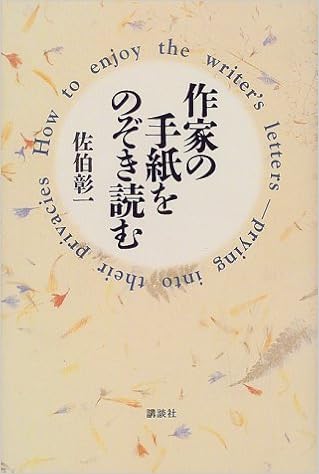 How to enjoy the writer's letters—prying into their privacies
作家の
手紙を
のぞき読む
佐伯彰一
講談社